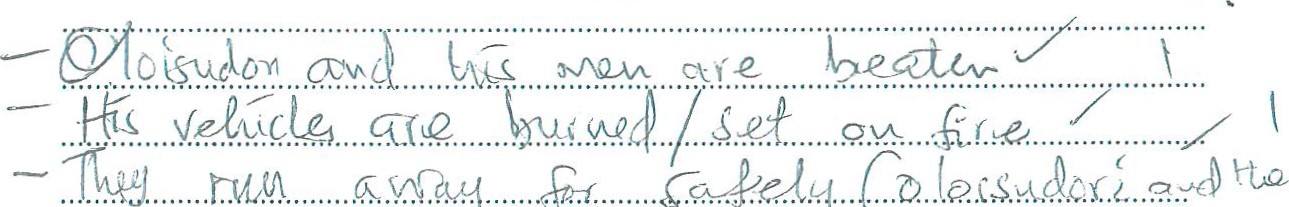 - Oloisudori and his men are beaten ✓ 1
- His vehicles are burned/set on fire ✓ 1
- They run away for safely (Oloisudori and the